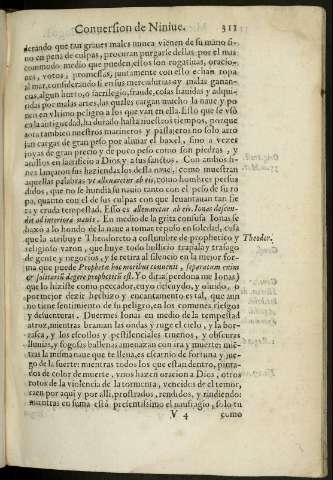 Conuersion de Niniue. 311
derando que tan graues males nunca vienen de su mano si-
no en pena de culpas, procuran purgarse dellas por el mas
comodo medio que pueden, estos son rogatiuas, oracio-
nes, votos, promessas, juntamente con esto echan ropa
al mar, considerando si en sus mercadurias ay malas ganan-
cias, algun hurto, o sacrilegio, fraude, cosas hauidas y adqui-
ridas por malas artes, las quales cargan mucho la naue y po-
nen en vltimo peligro a los que van en ella. Esto que se vsò
en la antiguedad, ha durado hasta nuestros tiempos, porque
aora tambien nuestros marineros y passajeros no solo arro
jan cargas de gran peso por aliuiar el baxel, sino a vezes
joyas de gran precio y de poco peso como son piedras, y
anillos en sacrificio a Dios y a sus sanctos. Con ambos fi-
nes lançaron sus haziendas los desta naue, como muestran
aquellas palabras vt alleuiaretur ab eis, como hombres persua
didos, que no se hundia su nauio tanto con el peso de su ro
pa, quanto con el de sus culpas con que leuantauan tan fie
ra y cruda tempestad. Esso es alleuiaretur ab eis. Ionas descen-
dit ad interiora nauis. En medio de la grita confusa Ionas se
baxò a lo hondo de la naue a tomar reposo en soledad, cosa
que la atribuye a Theodoreto a costumbre de prophetico y
religioso varon, que huye todo bullicio trapala y trafago
de gente y negocios, y se retira al silencio en la mejor for-
ma que puede Prophetæ hoc moribus conuenit, separatum enim
& solitarium degere propheticum est. Yo diria (perdoneme Ionas)
que lo hiziste como peccador, cuyo descuydo, y oluido, o
por mejor dezir hechizo y encantamento es tal, que aun
no tiene sentimiento de su peligro, en los comunes riesgos
y desuenturas. Duermes Ionas en medio de la tempestad
atroz, mientras braman las ondas y ruge el cielo, y la bor-
rasca, y los escollos y pestilenciales truenos, y obscuras
lluuias, y fogosas ballenas amenazan con ira y muerte: mien-
tras la misma naue que te lleua, es escarnio de fortuna y jue-
go de la suerte: mientras todos los que estan dentro, pinta-
dos de color de muerte, vnos hazen oracion a Dios, otros
rotos de la violencia de la tormenta, vencidos de el temor,
caen por aqui y por alli, prostrados, rendidos, y rindiendo:
mientras en suma està presentissimo el naufragio, solo tu
V 4 como
Theodor.